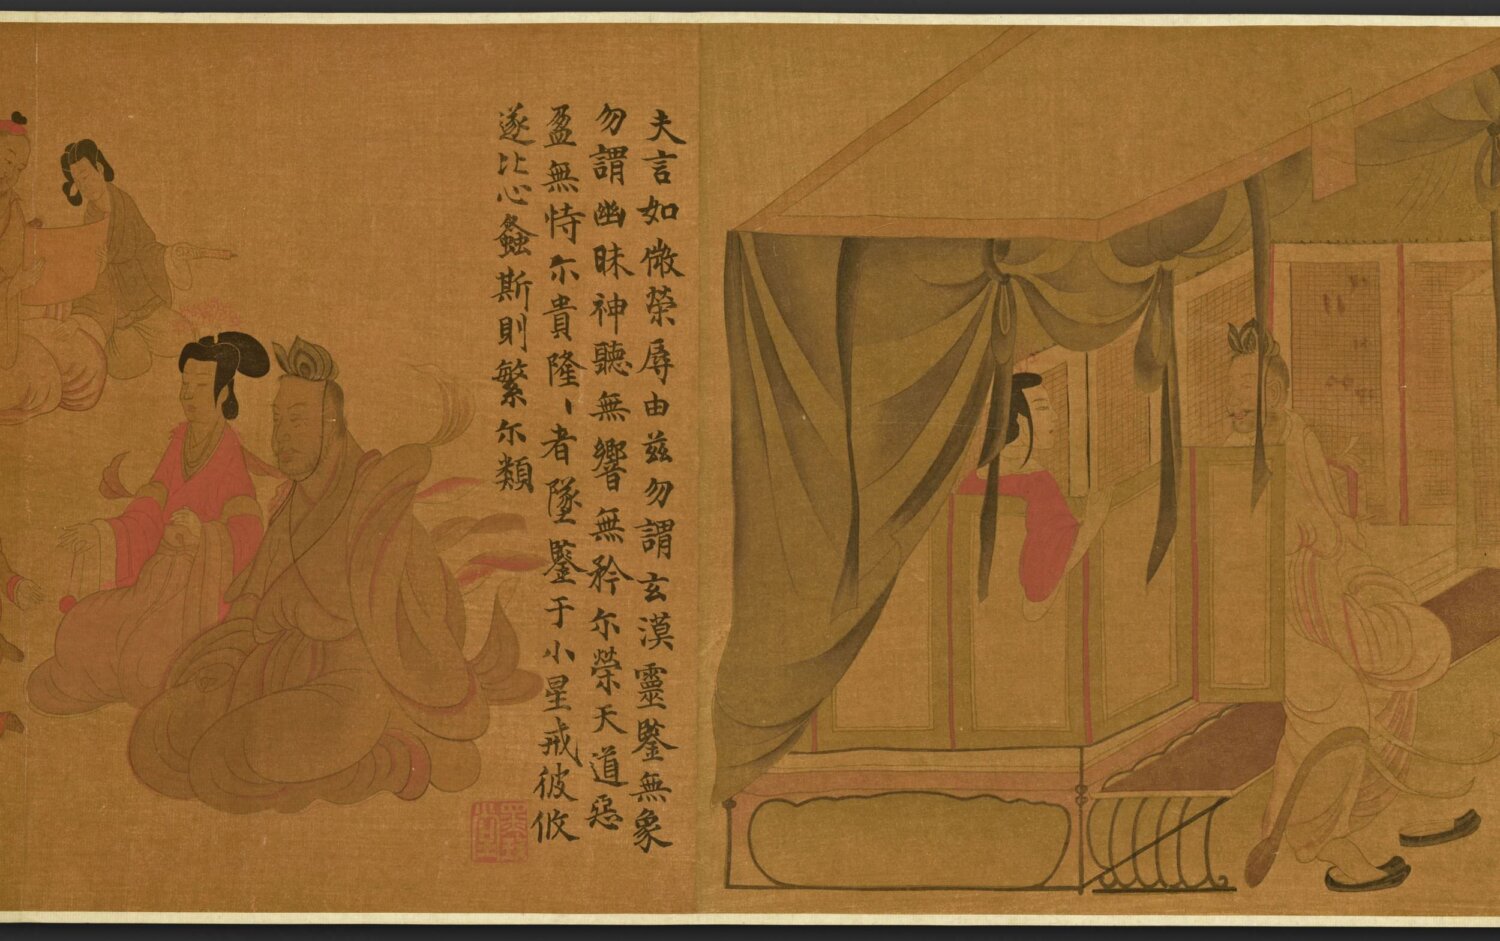 夫言如微榮辱由兹勿謂玄漠靈鑒無象
勿謂幽昧神聽無響無矜尒榮天道惡
盈無恃尒貴隆〻者墜鑒于小星戒彼攸
遂比心螽斯則繁尒類